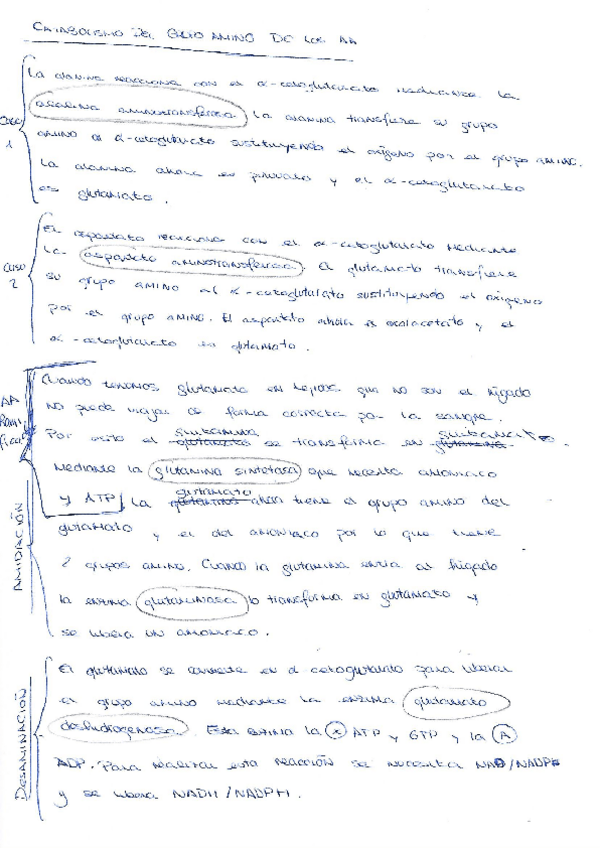 CATABOLISMO DEL GRUPO AMINO DE LOS AA
Caso 1
La alanina reacciona con el α-cetoglutarato mediante la
alanina aminotransferasa. La alanina transfiere su grupo
amino al α-cetoglutarato sustituyendo el oxígeno por el grupo AMINO.
La alanina ahora es piruvato y el α-cetoglutarato
es glutamato.
Caso 2
El aspartato reacciona con el α-cetoglutarato mediante
la aspartato aminotransferasa. El glutamato transfiere
su grupo amino al α-cetoglutarato sustituyendo el oxígeno
por el grupo AMINO. El aspartato ahora es oxalacetato y el
α-cetoglutarato es glutamato.
AA Ramificac
AMIDACIÓN
Cuando tenemos glutamato en tejidos que no son el hígado
no puede viajar de forma correcta por la sangre.
glutamina glutamato
Por esto el glutamato se transforma en glutamina.
Mediante la glutamina sintetasa que necesita amoniaco
glutamato
y ATP. La glutamina ahora tiene el grupo amino del
glutamato y el del amoniaco por lo que tiene
2 grupos amino. Cuando la glutamina entra al hígado
la enzima glutaminasa lo transforma en glutamato y
se libera un amoniaco.
DESAMINACIÓN
El glutamato se convierte en α cetoglutarato para liberar
el grupo amino mediante la enzima glutamato
deshidrogenasa. Esta enzima la ATP y GTP y la A
ADP. Para realizar esta reacción se necesita NAD/NADP+
y se libera NADH/NADPH.